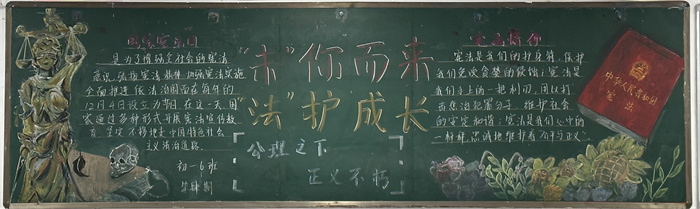 国家宪法日
是为了增强全社会的宪法
意识,弘扬宪法精神,加强宪法实施
全面推进依法治国而在每年的
12月4日设立为节日。在这一天,国
家通过多种形式开展宪法宣传教
育,坚定不移地走中国特色社会
主义法治道路。
初一6班
“未”你而来
“法”护成长
公理之下
正义不朽
宪法是我们的护身符,保护
我们免吹贪婪的侵蚀;宪法是
我们手上的一把利刃,用以打
击惩治犯罪分子,维护社会
的安定和谐;宪法是我们心中的
一杆秤,忠诚地维护着公平与正义。
中华人民共和国
宪法